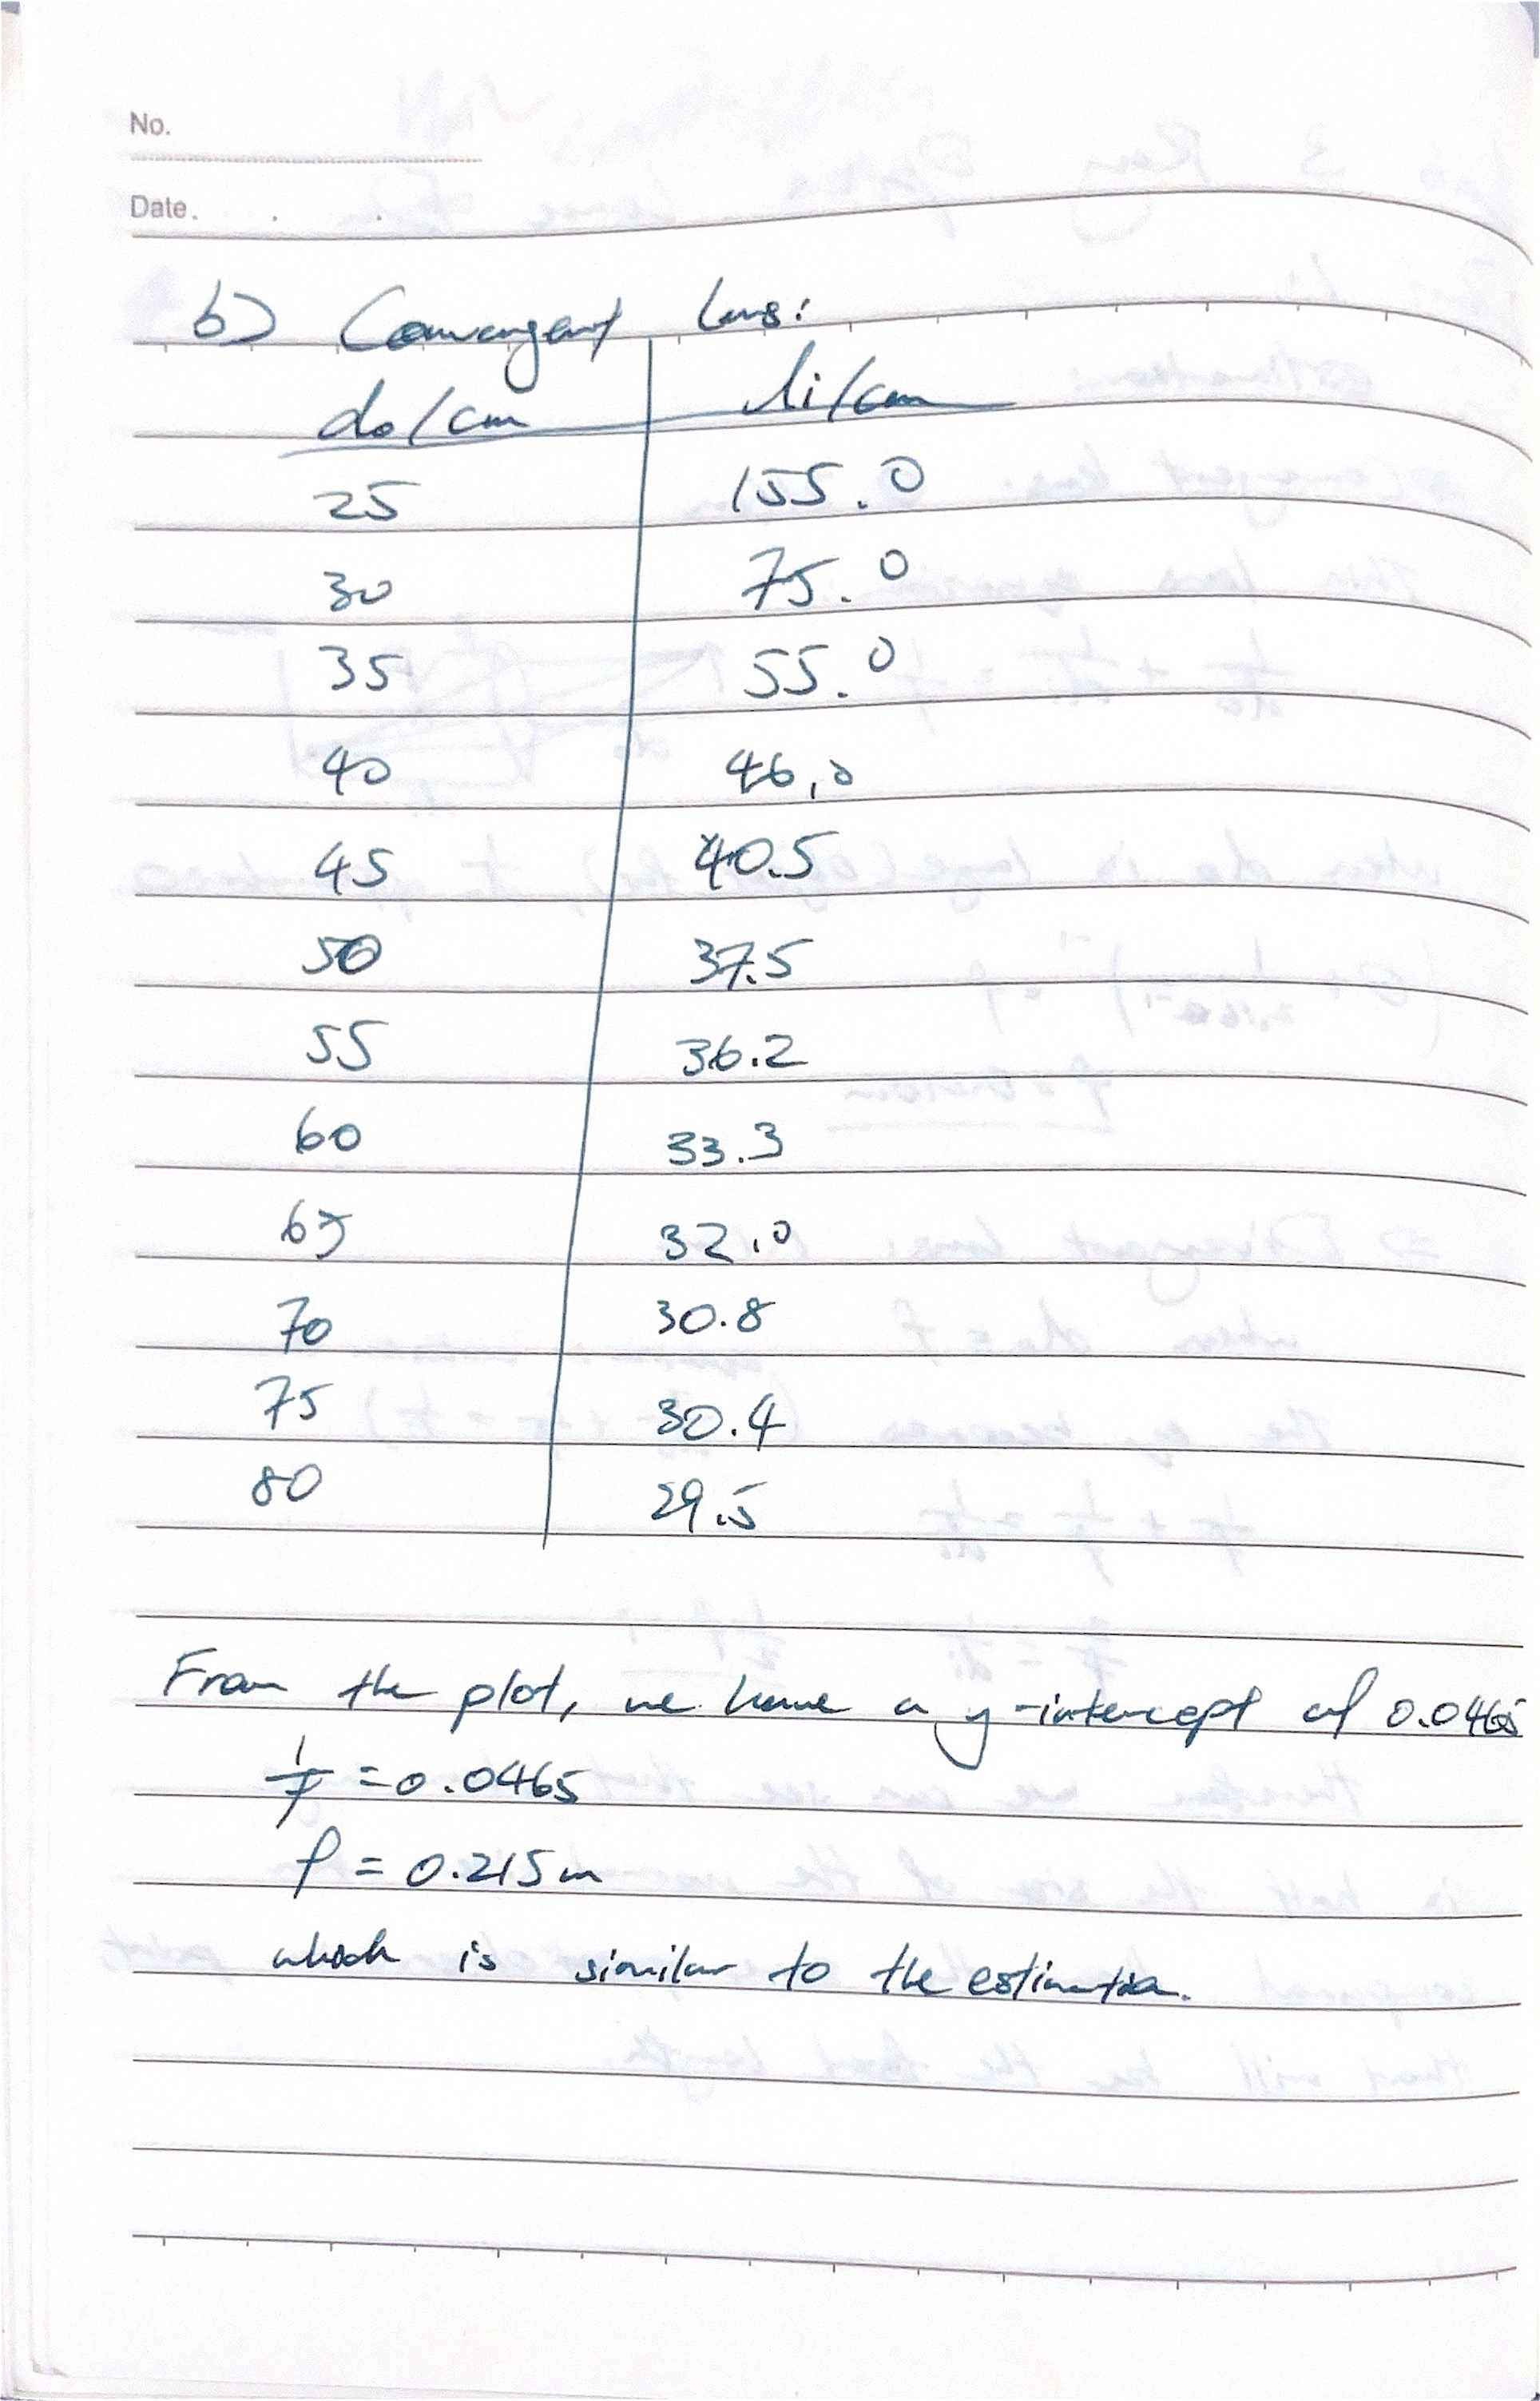 No.
Date. . .
b) Convergent lens:
do/cm di/cm
25 155.0
30 75.0
35 55.0
40 46.0
45 40.5
50 37.5
55 36.2
60 33.3
65 32.0
70 30.8
75 30.4
80 29.5
From the plot, we have a y-intercept of 0.0465
1/f = 0.0465
f = 0.215m
which is similar to the estimation.